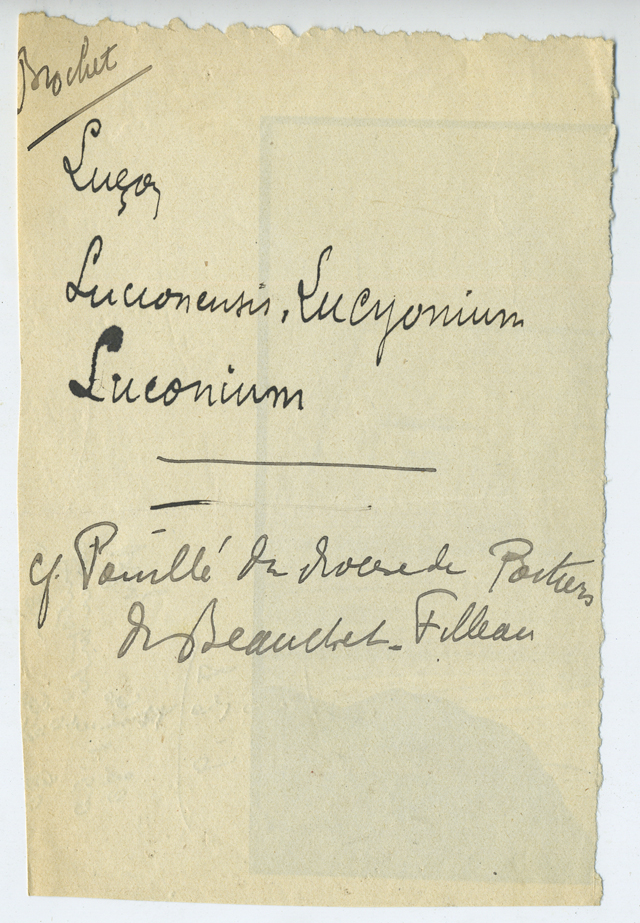 Brochet
Luçon
Lucionensis, Lucyonium
Luconium
cf. Pouillé du diocese de Poitiers
de Beauchet-Filleau